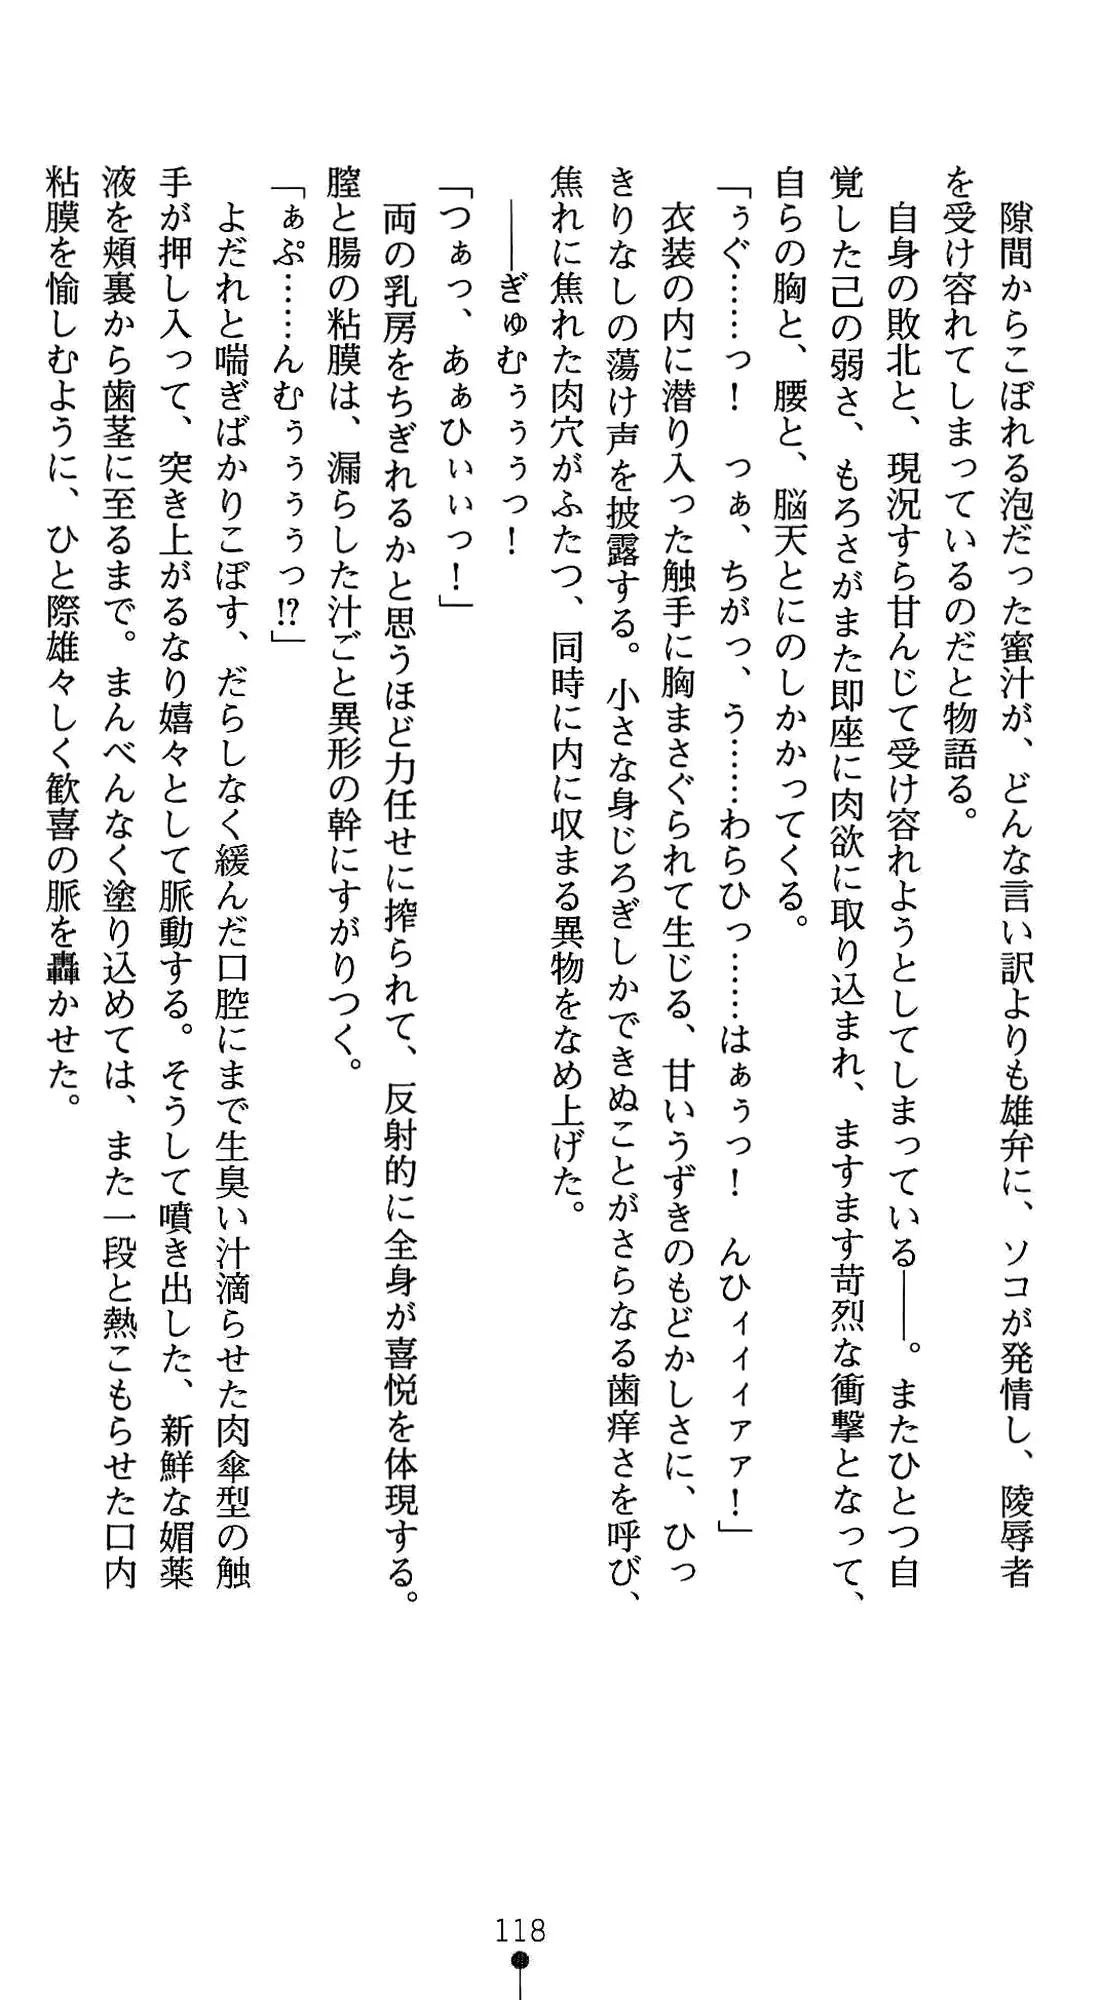 隙間からこぼれる泡だった蜜汁が、どんな言い訳よりも雄弁に、ソコが発情し、陵辱者
を受け容れてしまっているのだと物語る。
自身の敗北と、現況すら甘んじて受け容れようとしてしまっている――。またひとつ自
覚した己の弱さ、もろさがまた即座に肉欲に取り込まれ、ますます苛烈な衝撃となって、
自らの胸と、腰と、脳天とにのしかかってくる。
「ぅぐ……っ！　つぁ、ちがっ、う……わらひっ……はぁぅっ！　んひィィィァァ！」
衣装の内に潜り入った触手に胸まさぐられて生じる、甘いうずきのもどかしさに、ひっ
きりなしの蕩け声を披露する。小さな身じろぎしかできぬことがさらなる歯痒さを呼び、
焦れに焦れた肉穴がふたつ、同時に内に収まる異物をなめ上げた。
――ぎゅむぅぅぅっ！
「つぁっ、あぁひぃぃっ！」
両の乳房をちぎれるかと思うほど力任せに搾られて、反射的に全身が喜悦を体現する。
膣と腸の粘膜は、漏らした汁ごと異形の幹にすがりつく。
「ぁぷ……んむぅぅぅぅっ!?」
よだれと喘ぎばかりこぼす、だらしなく緩んだ口腔にまで生臭い汁滴らせた肉傘型の触
手が押し入って、突き上がるなり嬉々として脈動する。そうして噴き出した、新鮮な媚薬
液を頬裏から歯茎に至るまで。まんべんなく塗り込めては、また一段と熱こもらせた口内
粘膜を愉しむように、ひと際雄々しく歓喜の脈を轟かせた。
118